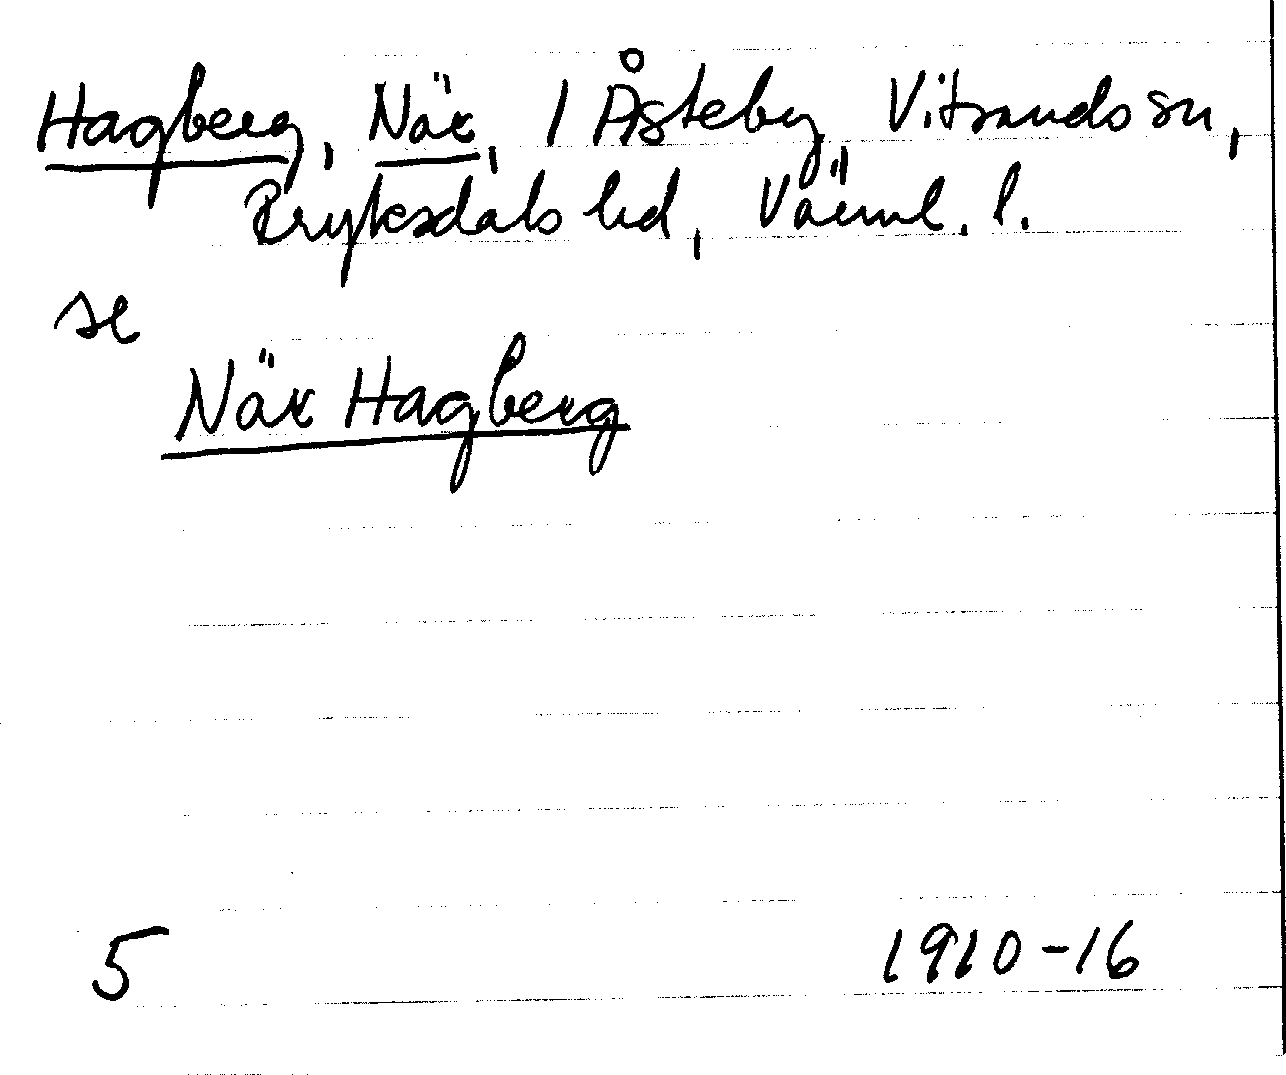 Hagberg, När, 1 Åsteby, Vitsands sn,
Fryksdals hd, Värml. l.
se
När Hagberg
5 1910-16